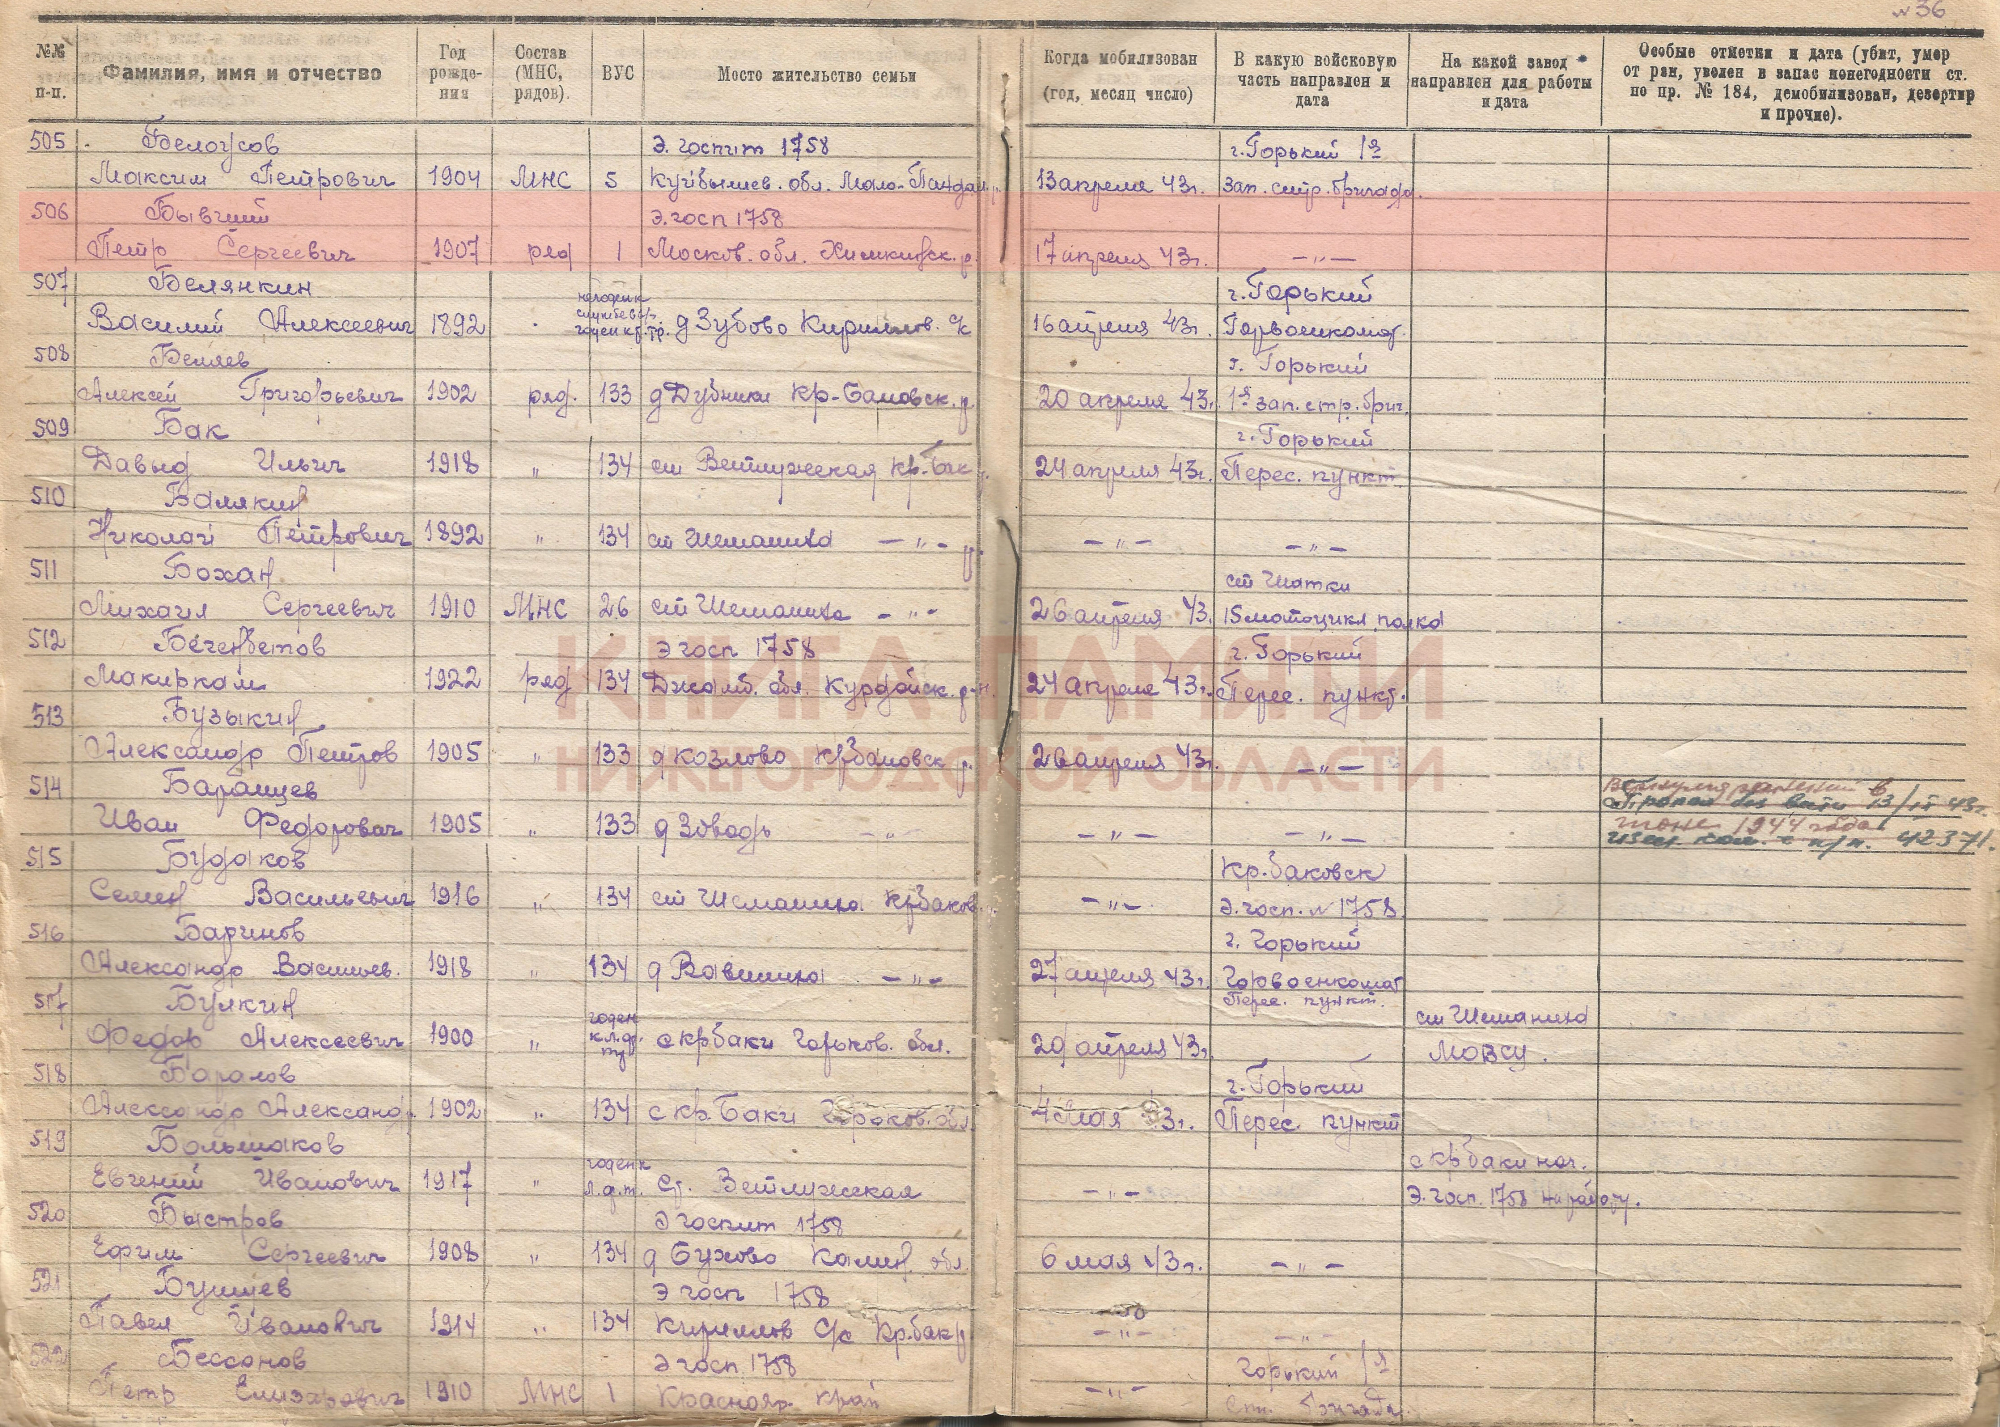 № 36
№№ п-п.
Фамилия, имя и отчество
Год рожде-ния
Состав (МНС, рядов).
ВУС
Мосто жительство семьи
Когда мобилизован (год, месяц число)
В какую войсковую часть направлен и дата
На какой завод направлен для работы и дата
Особые отметки и дата (убит, умер от ран, уволен в запас понегодности ст. по пр. № 184, демобилизован, дезертир и прочие).
505 Белоусов Э. госпит 1758 г. Горький 1я
Максим Петрович 1904 МНС 5 Куйбышев. обл. 13 апреля 43г. зап. стр. бригада
506 Бывший Э. госп 1758
Петр Сергеевич 1907 ряд 1 Москов. обл. Химкинск. р. 17 апреля 43г. —„—
507 Белянкин г. Горький
Василий Алексеевич 1892 д Зубово Кириллов. с/с 16 апреля 43г. Горвоенкомат.
508 Беляев г. Горький
Алексей Григорьевич 1902 ряд. 133 д Дубники Кр-Баковск. р. 20 апреля 43г. 1я зап. стр. бриг.
509 Бак г. Горький
Давыд Ильич 1918 „ 134 ст Ветлужская Кр. Бак 24 апреля 43г. Перес. пункт
510 Балякин
Николай Петрович 1892 „ 134 ст Шеманиха —„— р. —„— —„—
511 Бохан ст Шатки
Михаил Сергеевич 1910 МНС 26 ст Шеманиха —„— 26 апреля 43. 15 мотоцикл. полка
512 Э госп 1758 г. Горький
1922 ряд 134 Джамб. обл. Курдайск. р-н. 24 апреля 43г. Перес. пункт.
513 Бузыкин
Александр Петров 1905 „ 133 д Козлово КрБаковск р. 26 апреля 43г. —„—
514 Баранцев
Иван Федорович 1905 „ 133 д —„— —„— —„—
Вернулся
Пропал без вести
июне 1944 года
42371.
515 Будаков Кр. баковск
Семен Васильевич 1916 „ 134 ст Шеманиха Крбаков. —„— Э. госп. № 1758
516 Баринов г. Горький
Александр Васильев. 1918 „ 134 д Вавилиха —„— 27 апреля 43г. Горвоенкомат
Перес. пункт.
517 Булкин годен ст Шеманиха
Федор Алексеевич 1900 „ с крбаки Горьков. обл. 29 апреля 43г. МОБСУ.
518 Баранов г. Горький
Александр Александр. 1902 „ 134 с кр. Баки Горьков. обл. 4 мая 43г. Перес. пункт
519 Большаков годен к с крбаки нач.
Евгений Иванович 1917 „ ст. Ветлужская —„— Э. госп. 1758 на работу.
520 Быстров Э госпит 1758
Ефим Сергеевич 1908 „ 134 д Калин. обл. 6 мая 43г. —„—
521 Э госп 1758
Павел Иванович 1914 „ 134 Кириллов с/с Кр. бак р —„— —„—
522 Бессонов Э госп 1758 Горький 1я
Петр 1910 МНС 1 Краснояр. край —„— бригада.
КНИГА ПАМЯТИ
НИЖЕГОРОДСКОЙ ОБЛАСТИ